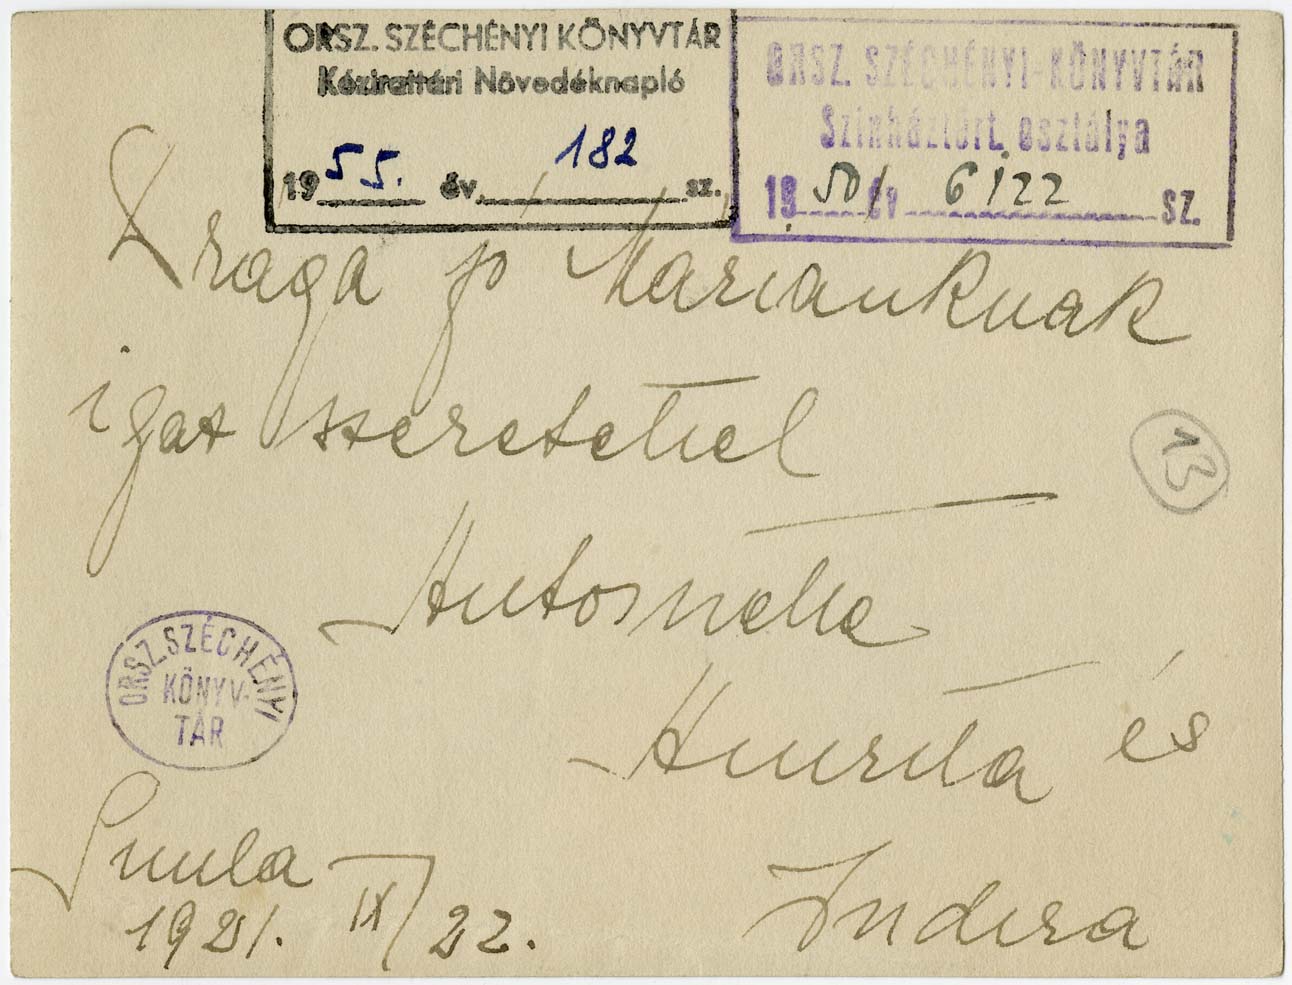 ORSZ. SZÉCHÉNYI KÖNYVTÁR
Kézirattári Növedéknapló
1955. év 182 sz.
ORSZ. SZÉCHÉNYI KÖNYVTÁR
Szinháztört. osztálya
1950/ év 6122 sz.
Draga jó Mariauknak
igaz szeretettel
13
Antoinette
Amrita és
Indira
ORSZ. SZÉCHÉNYI
KÖNYV-
TÁR
Simla
1921. IX/22.